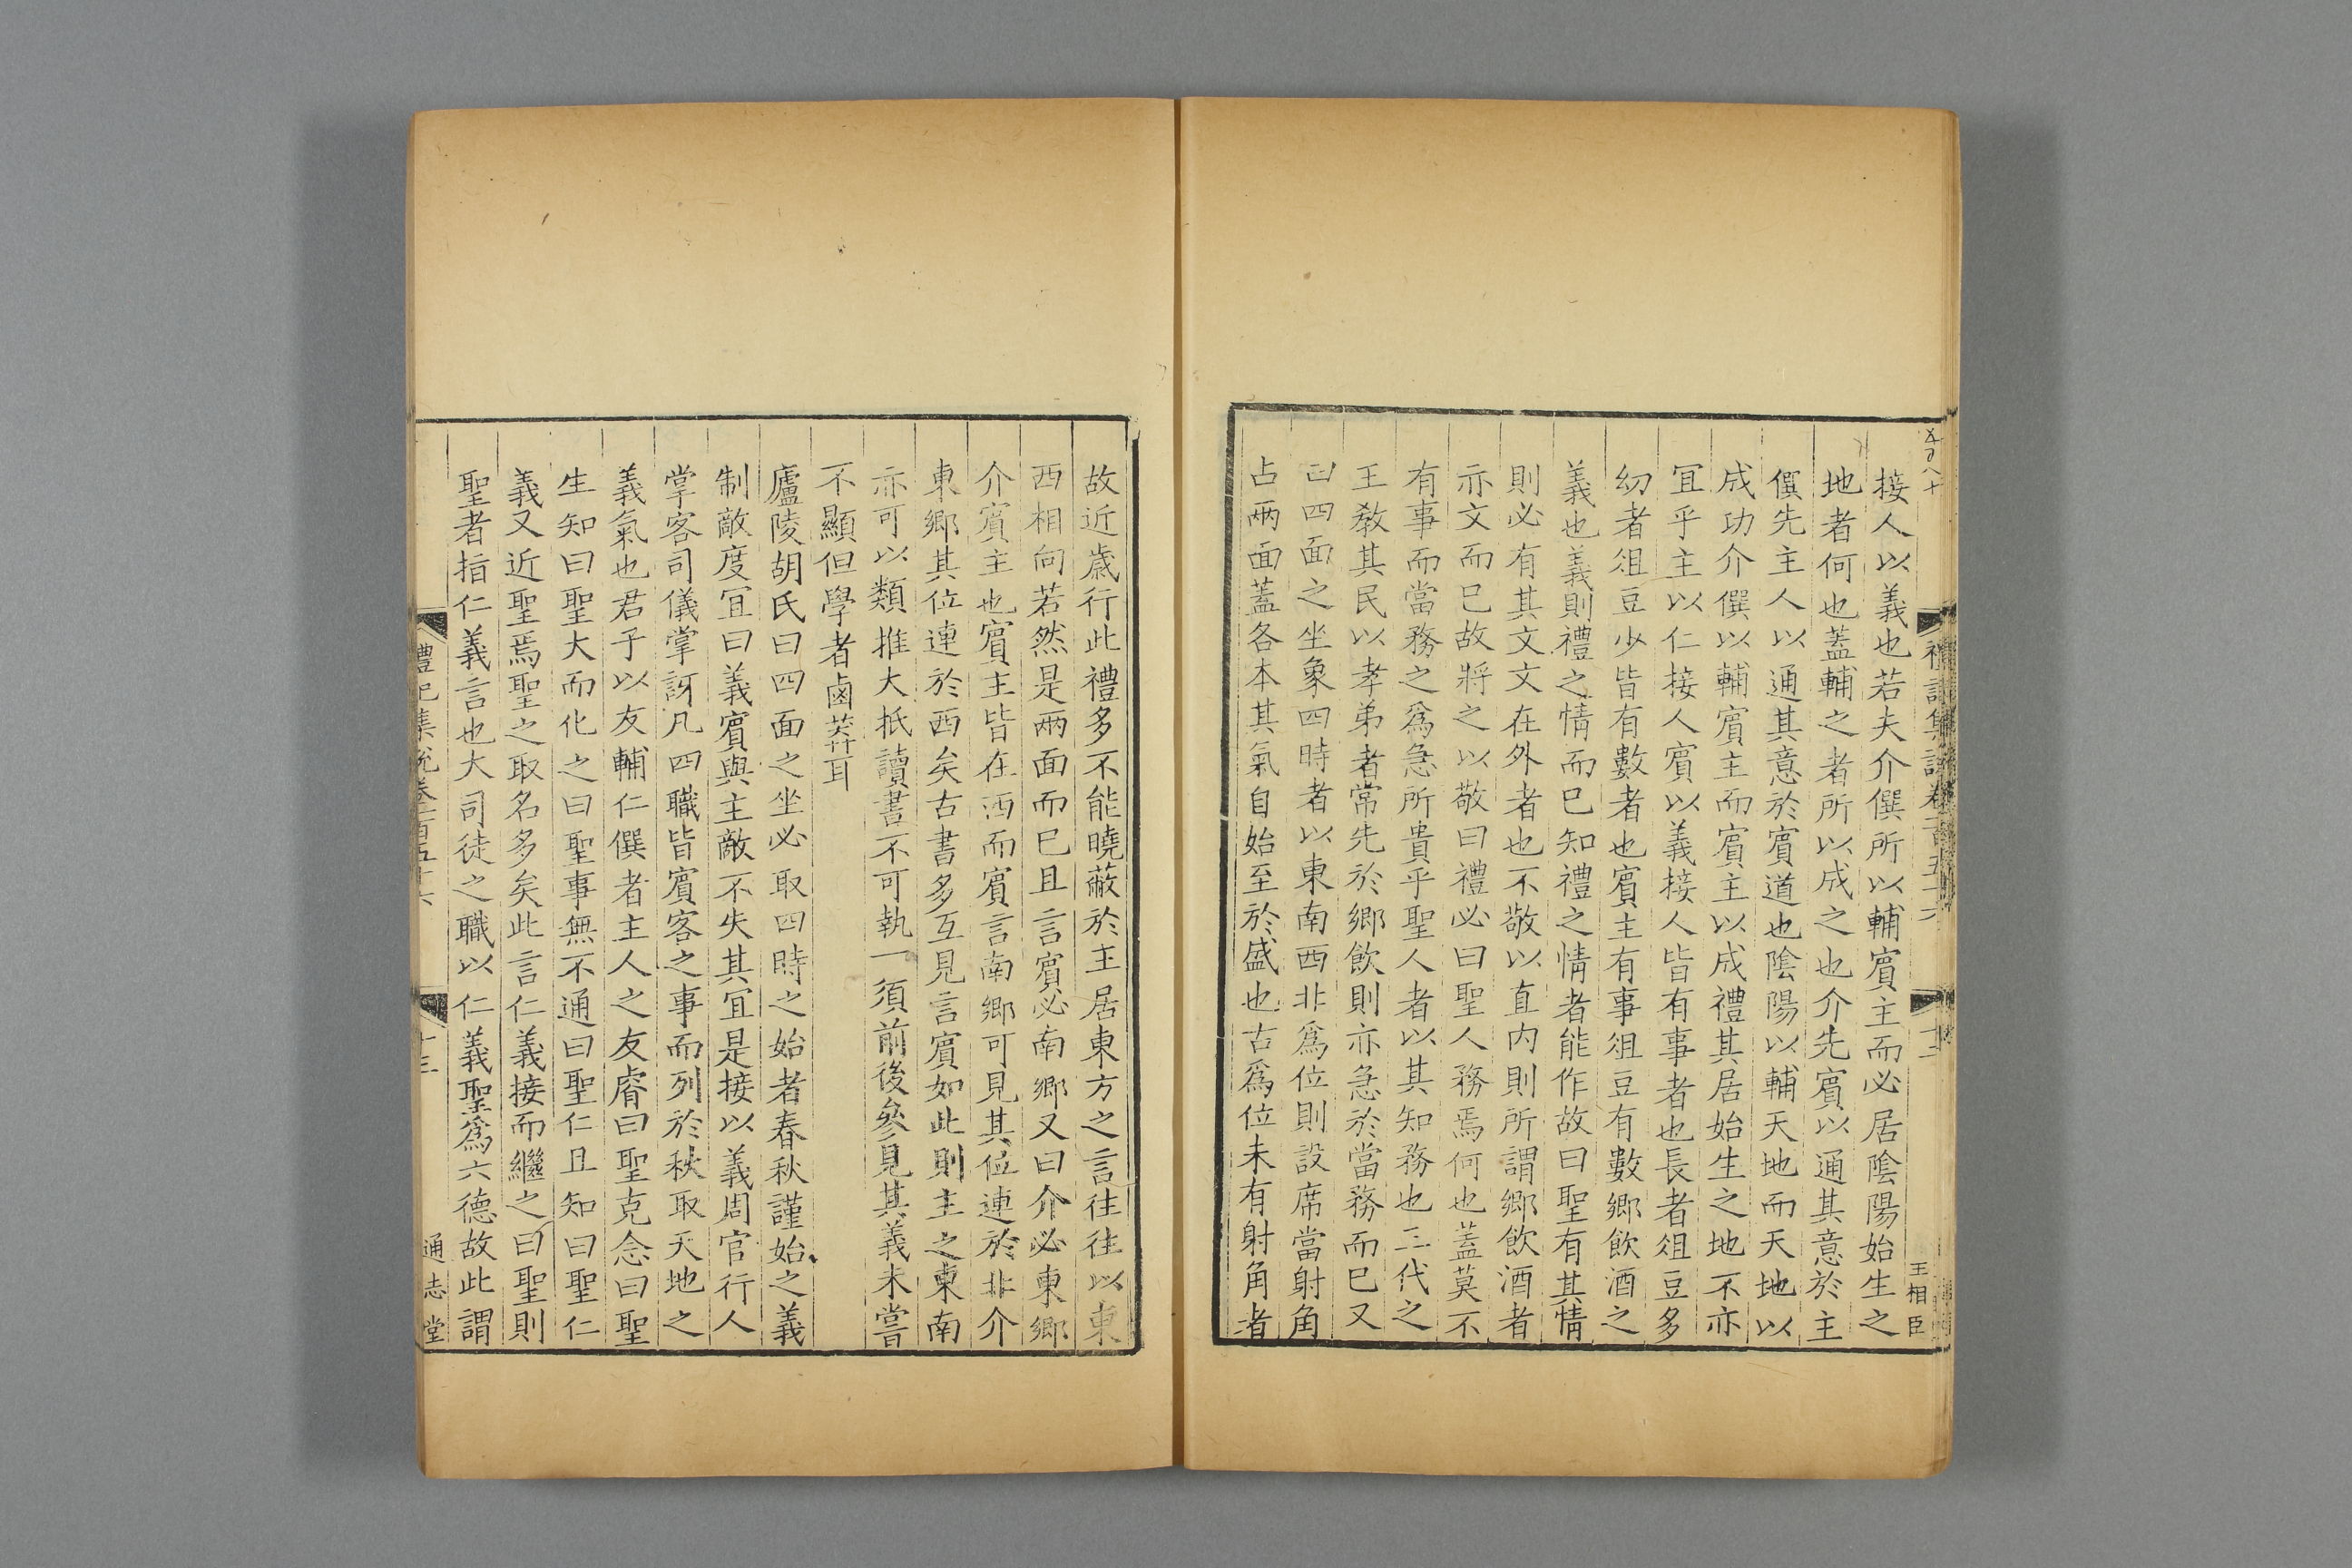 禮記集說卷一百五十六
十二
王相臣
接人以義也若夫介僎所以輔賓主而必居陰陽始生之
地者何也蓋輔之者所以成之也介先賓以通其意於主
僎先主人以通其意於賓道也陰陽以輔天地而天地以
成功介僎以輔賓主而賓主以成禮其居始生之地不亦
宜乎主以仁接人賓以義接人皆有事者也長者俎豆多
幼者俎豆少皆有數者也賓主有事俎豆有數鄉飲酒之
義也義則禮之情而已知禮之情者能作故曰聖有其情
則必有其文文在外者也不敬以直内則所謂鄉飲酒者
亦文而已故將之以敬曰禮必曰聖人務焉何也蓋莫不
有事而當務之爲急所貴乎聖人者以其知務也三代之
王敎其民以孝弟者常先於鄉飲則亦急於當務而已又
曰四面之坐象四時者以東南西北爲位則設席當射角
占兩面蓋各本其氣自始至於盛也古爲位未有射角者
故近歲行此禮多不能曉蔽於主居東方之言往往以東
西相向若然是兩面而已且言賓必南鄉又曰介必東鄉
介賓主也賓主皆在西而賓言南鄉可見其位連於北介
東鄉其位連於西矣古書多互見言賓如此則主之東南
亦可以類推大抵讀書不可執一須前後參見其義未嘗
不顯但學者鹵莽耳
廬陵胡氏曰四面之坐必取四時之始者春秋謹始之義
制敵度宜曰義賓與主敵不失其宜是接以義周官行人
掌客司儀掌訝凡四職皆賓客之事而列於秋取天地之
義氣也君子以友輔仁僎者主人之友睿曰聖克念曰聖
生知曰聖大而化之曰聖事無不通曰聖仁且知曰聖仁
義又近聖焉聖之取名多矣此言仁義接而繼之曰聖則
聖者指仁義言也大司徒之職以仁義聖爲六德故此謂
禮記集說卷一百五十六
十三
通志堂